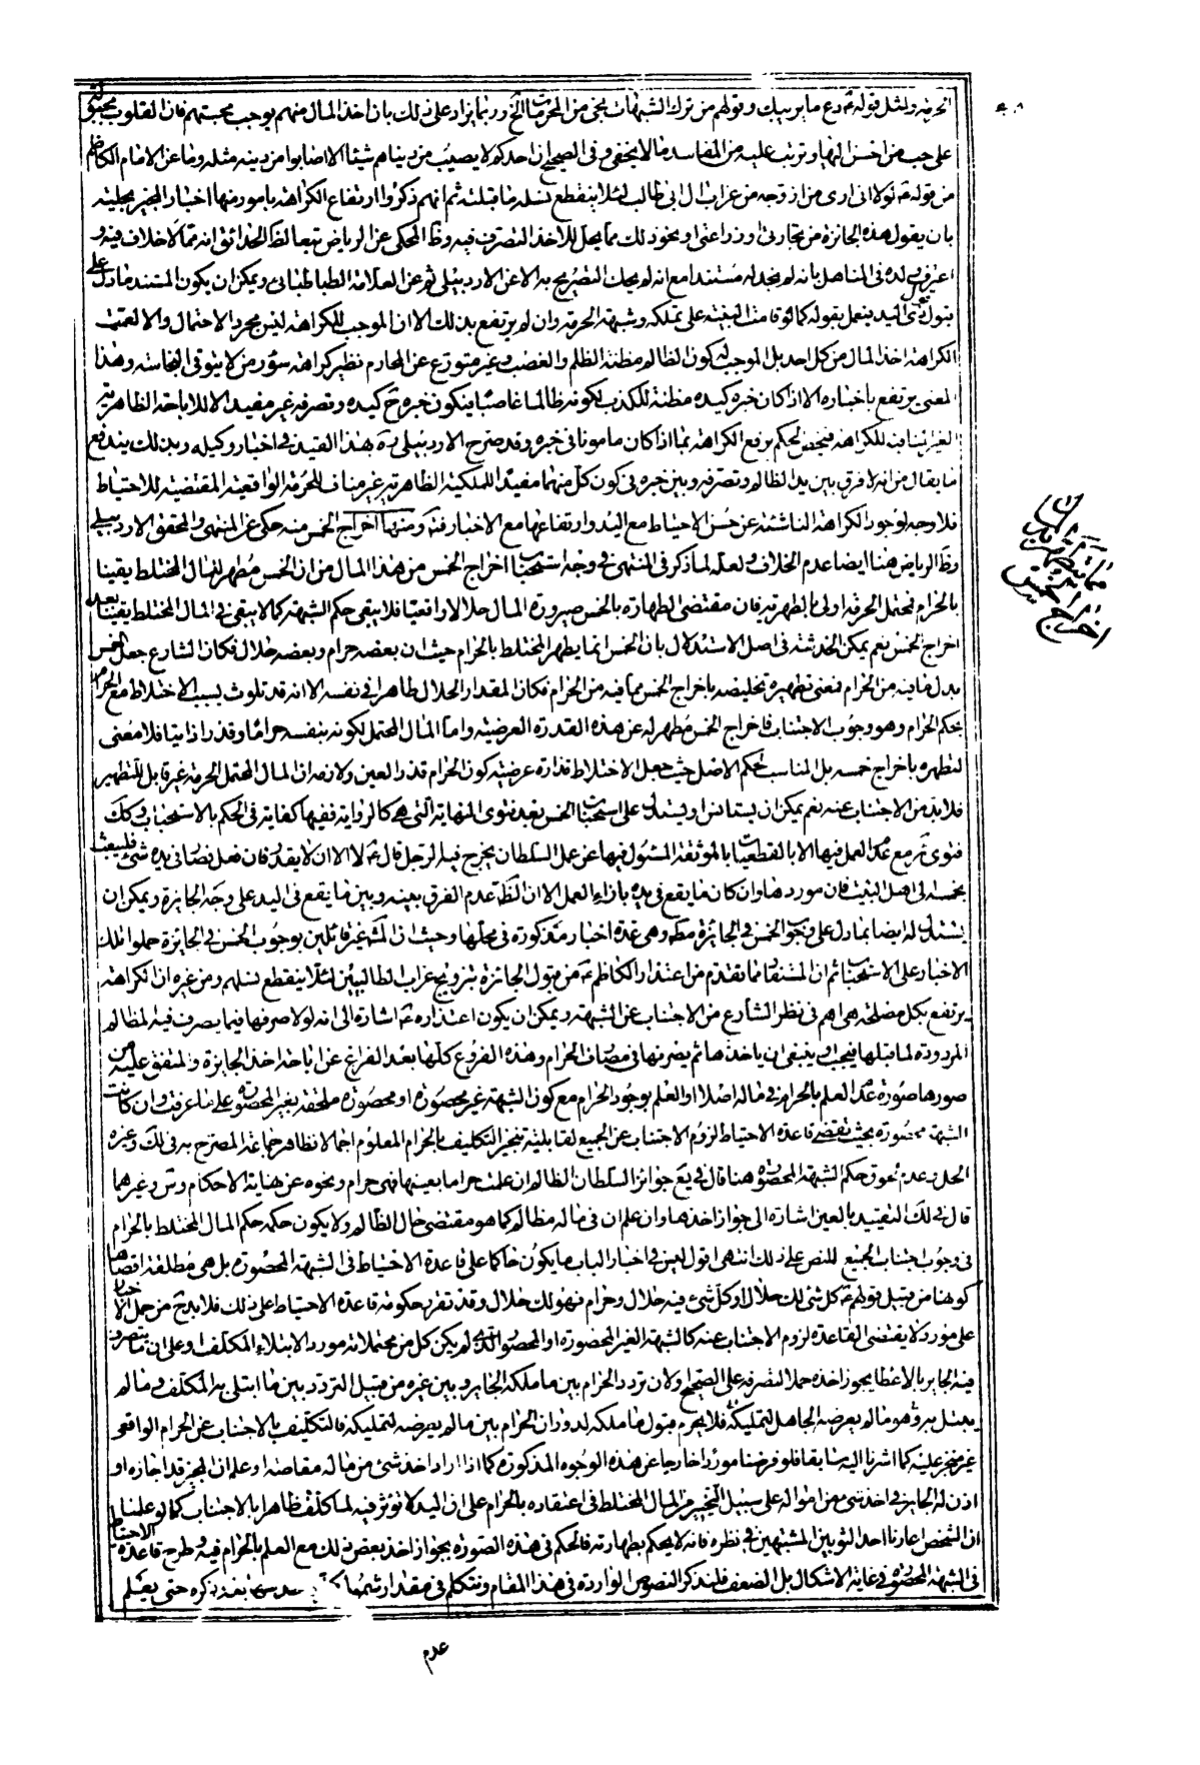 الحرمة ولمثل قوله ع دع ما يريبك وقولهم من ترك الشبهات نجى من المحرمات الخ وربما يزاد على ذلك بان اخذ المال منهم يوجب محبتهم فان القلوب مجبولة
على حب من احسن اليها ويترتب عليه من المفاسد ما لا يخفى وفى الصحيح ان احدكم لا يصيب من دنياهم شيئا الا اصابوا من دينه مثله وما عن الامام الكاظم
من قوله ع لولا انى ارى من ازوجه من عزاب ال ابى طالب لئلا ينقطع نسله ما قبلته ثم انهم ذكروا ارتفاع الكراهة بامور منها اخبار المجيز بحليته
بان يقول هذه الجائزة من تجارتى او زراعتى او نحو ذلك مما يحل للاخذ التصرف فيه وظ المحكى عن الرياض تبعا لظ الحدائق انه مما لا خلاف فيه و
اعترف ولده فى المناهل بانه لم يجد له مستندا مع انه لم يحك التصريح به الا عن الاردبيلى ثم عن العلامة الطباطبائى ويمكن ان يكون المستند ما دل على
قبول قول ذى اليد فيعمل بقوله كما لو قامت البينة على تملكه وشبهة الحرمة وان لم يرتفع بذلك الا ان الموجب للكراهة ليس مجرد الاحتمال والا لعمت
الكراهة اخذ المال من كل احد بل الموجب له كون الظالم مظنة الظلم والغصب وغير متورع عن المحارم نظير كراهة سؤر من لا يتوقى النجاسة وهذا
المعنى يرتفع باخباره الا اذا كان خبره كيده مظنة للكذب لكونه ظالما غاصبا فيكون خبره ح كيده وتصرفه غير مفيد الا للاباحة الظاهرية
الغير المنافية للكراهة فيخص الحكم برفع الكراهة بما اذا كان مامونا فى خبره وقد صرح الاردبيلى ره بهذا القيد فى اخبار وكيله وبذلك يندفع
ما يقال من انه لا فرق بين يد الظالم وتصرفه وبين خبره فى كون كل منهما مفيدا للملكية الظاهرية غير مناف للحرمة الواقعية المقتضية للاحتياط
فلا وجه لوجود الكراهة الناشئة عن حسن الاحتياط مع اليد وارتفاعها مع الاخبار فت ومنها اخراج الخمس منه حكى عن المنتهى والمحقق الاردبيلى
وظ الرياض هنا ايضا عدم الخلاف ولعله لما ذكر فى المنتهى فى وجه استحباب اخراج الخمس من هذا المال من ان الخمس مطهر للمال المختلط يقينا
بالحرام فمحتمل الحرمة اولى بالطهر به فان مقتضى الطهارة بالخمس صيرورة المال حلالا واقعيا فلا يبقى حكم الشبهة كما لا يبقى فى المال المختلط يقينا بعد
اخراج الخمس نعم يمكن الخدشة فى اصل الاستدلال بان الخمس انما يطهر المختلط بالحرام حيث ان بعضه حرام وبعضه حلال فكان الشارع جعل الخمس
بدل ما فيه من الحرام فمعنى تطهيره تخليصه باخراج الخمس مما فيه من الحرام فكان المقدار الحلال طاهرا فى نفسه الا انه قد تلوث بسبب الاختلاط مع الحرام
بحكم الحرام وهو وجوب الاجتناب فاخراج الخمس مطهر له عن هذه القذارة العرضية واما المال المحتمل لكونه بنفسه حراما وقذرا ذاتيا فلا معنى
لتطهره باخراج خمسه بل المناسب لحكم الاصل حيث جعل الاختلاط قذارة عرضية كون الحرام قذر العين ولازمه ان المال المحتمل الحرمة غير قابل للتطهير
فلا بد من الاجتناب عنه نعم يمكن ان يستانس او يستدل على استحباب الخمس بعد فتوى النهاية التى هى كالرواية ففيها كفاية فى الحكم بالاستحباب وكك
فتوى ئر مع عدم العمل فيها الا بالقطعيات بالموثقة المسئول فيها عن عمل السلطان يخرج فيه الرجل قال ع لا الا ان لا يقدر فان فعل فصار فى يده شئ فليبعث
بخمسه الى اهل البيت فان موردها وان كان ما يقع فى يده بازاء العمل الا ان الظ عدم الفرق بينه وبين ما يقع فى اليد على وجه الجائزة ويمكن ان
يستدل له ايضا بما دل على وجوب الخمس فى الجائزة مط وهى عدة اخبار مذكورة فى محلها وحيث ان المش غير قائلين بوجوب الخمس فى الجائزة حملوا تلك
الاخبار على الاستحباب ثم ان المستفاد مما تقدم من اعتذار الكاظم ع من قبول الجائزة بتزويج عزاب الطالبيين لئلا ينقطع نسلهم ومن غيره ان الكراهة
يرتفع بكل مصلحة هى اهم فى نظر الشارع من الاجتناب عن الشبهة ويمكن ان يكون اعتذاره ع اشارة الى انه لولا صرفها فيما يصرف فيه المظالم
المردودة لما قبلها فيجب او ينبغى ان ياخذها ثم يصرفها فى مصارف الحرام وهذه الفروع كلها بعد الفراغ عن اباحة اخذ الجائزة والمتفق عليه من
صورها صورة عدم العلم بالحرام فى ماله اصلا او العلم بوجود الحرام مع كون الشبهة غير محصورة او محصورة ملحقة بغير المحصورة على ما عرفت وان كانت
الشبهة محصورة بحيث يقضى قاعدة الاحتياط لزوم الاجتناب عن الجميع لقابلية تنجز التكليف بالحرام المعلوم اجمالا فظاهر جماعة المصرح به فى لك وغيره
الحل وعدم لحوق حكم الشبهة المحصورة هنا قال فى يع جوائز السلطان الظالم ان علمت حراما بعينها فهى حرام ونحوه عن نهاية الاحكام وس وغيرهما
قال فى لك التقييد بالعين اشارة الى جواز اخذها وان علم ان فى ماله مظالم كما هو مقتضى حال الظالم ولا يكون حكمه حكم المال المختلط بالحرام
فى وجوب اجتناب الجميع للنص على ذلك انتهى اقول ليس فى اخبار الباب ما يكون حاكما على قاعدة الاحتياط فى الشبهة المحصورة بل هى مطلقة اقصاها
كونها من قبيل قولهم ع كل شئ لك حلال او كل شئ فيه حلال وحرام فهو لك حلال وقد تقرر حكومة قاعدة الاحتياط على ذلك فلا بد ح من حمل الاخبار
على مورد لا يقتضى القاعدة لزوم الاجتناب عنه كالشبهة الغير المحصورة او المحصورة التى لم يكن كل من محتملاته مورد الابتلاء المكلف او على ان ما يتصرف
فيه الجاير بالاعطاء يجوز اخذه حملا لتصرفه على الصحيح ولان تردد الحرام بين ما ملكه الجاير وبين غيره من قبيل التردد بين ما ابتلى به المكلف وما لم
يبتل به وهو ما لم يعرضه الجاهل لتمليكه فلا يحرم قبول ما ملكه لدوران الحرام بين ما لم يعرضه لتمليكه فالتكليف بالاجتناب عن الحرام الواقعى
غير منجز عليه كما اشرنا اليه سابقا فلو فرضنا موردا خارجا عن هذه الوجوه المذكورة كما اذا اراد اخذ شئ من ماله مقاصة او علم ان المجيز قد اجازه او
اذن له الجاير فى اخذ شئ من امواله على سبيل التخيير من المال المختلط فى اعتقاده بالحرام على ان اليد لا تؤثر فيه لما كلف ظاهرا بالاجتناب كما لو علمنا
ان الشخص اعارنا احد الثوبين المشتبهين فى نظره فانه لا يحكم بطهارته فالحكم فى هذه الصورة بجواز اخذ بعض ذلك مع العلم بالحرام فيه وطرح قاعدة الاحتياط
فى الشبهة المحصورة فى غاية الاشكال بل الضعف فلنذكر النصوص الواردة فى هذا المقام ونتكلم فى مقدار شمولها ذكره حتى يعلم
عدم
اخراج خمس